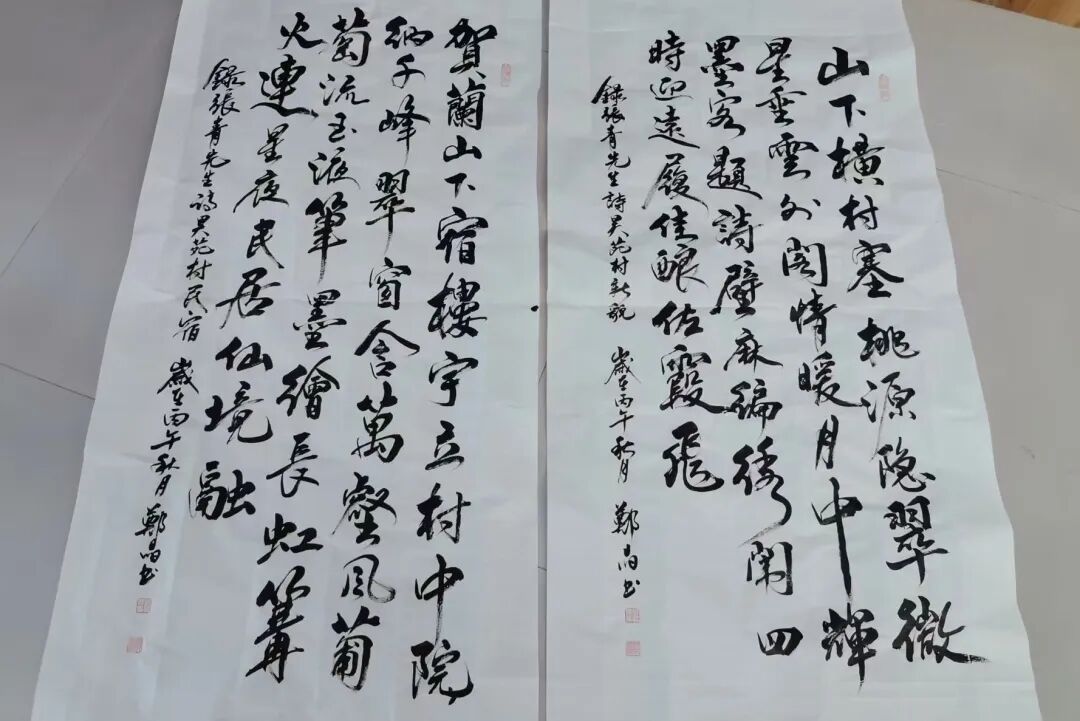 山下横村塞桃源隐翠微
星垂雲外閣情暖月中輝
墨客題詩壁麻編綉闈四
時迎遠履佳釀佐霞飛
錄張青先生詩昊苑村新貌 歲在丙午秋月 鄭晶书
賀蘭山下宿樓宇立村中院
納千峰翠窗含萬壑風葡
萄流玉液筆墨繪長虹篝
火連星夜民居仙境融
錄張青先生詩昊苑村民宿 歲在丙午秋月 鄭晶书